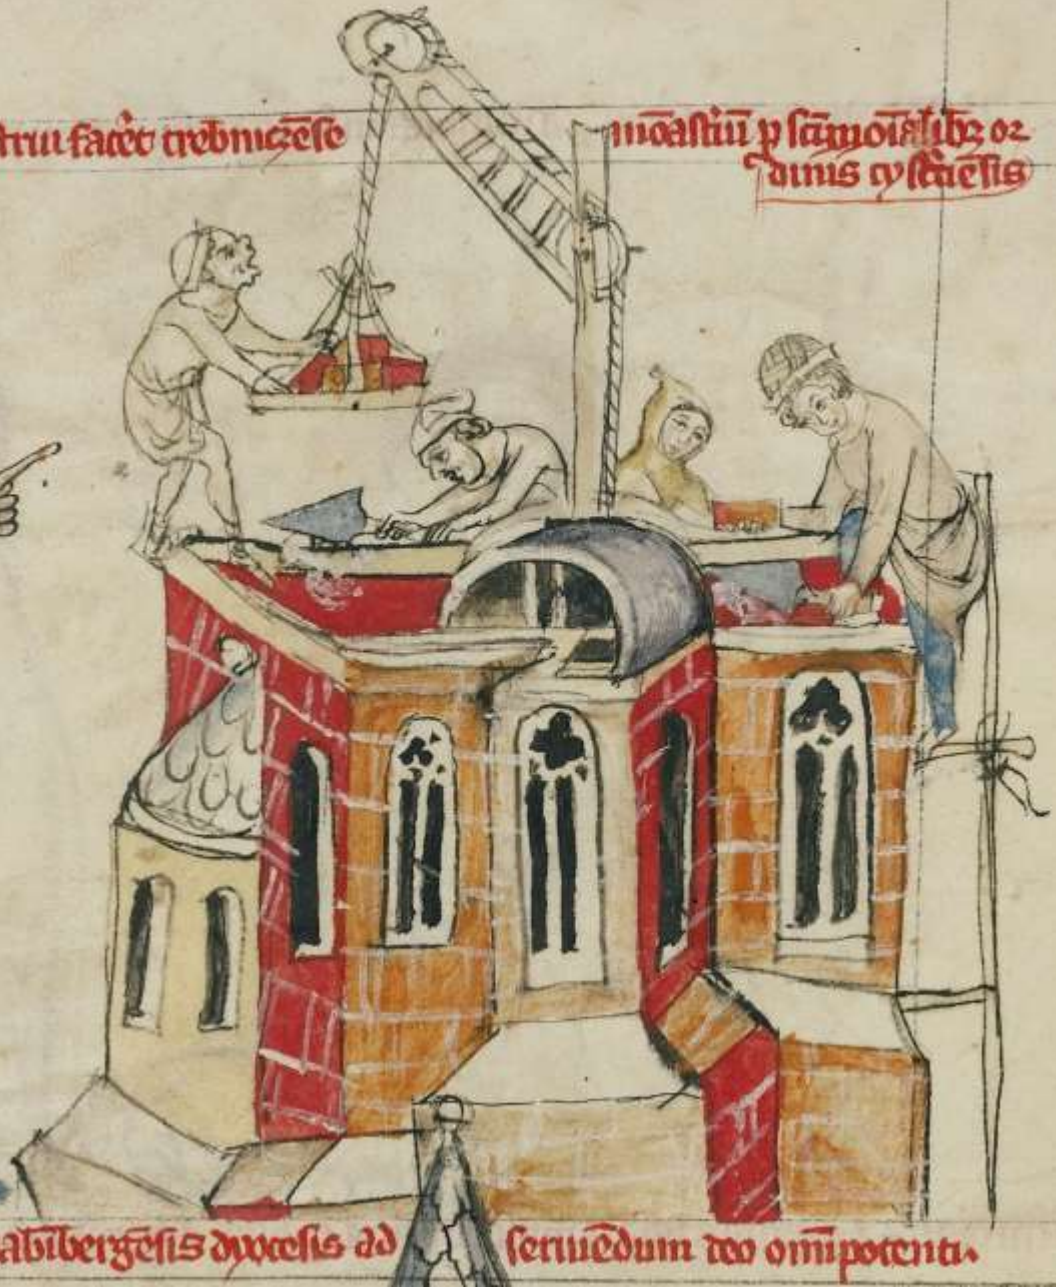 trui facēt trebniczēse mōastiū p̱ sc̄imoīalibꝫ or
dinis cystc̄iēsis
abībergēsis dyocesis ad seruiēdum deo om̄ipotenti.